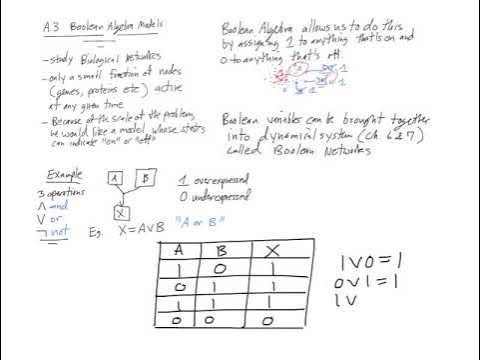 A.3 Boolean Algebra Models
- study Biological networks
- only a small fraction of nodes
(genes, proteins etc.) active
at any given time
- Because of the scale of the problems,
we would like a model whose states
can indicate "on" or "off"
Boolean Algebra allows us to do this
by assigning 1 to anything that's on and
0 to anything that's off.
1
1
1
Boolean variables can be brought together
into dynamical system (ch. 6&7)
called Boolean Networks
Example
3 operations
∧ and
∨ or
¬ not
A B
X
1 overexpressed
0 underexpressed
Eg, X=A∨B "A or B"
A B X
1 0 1
0 1 1
1 1 1
0 0 0
1∨0=1
0∨1=1
1∨